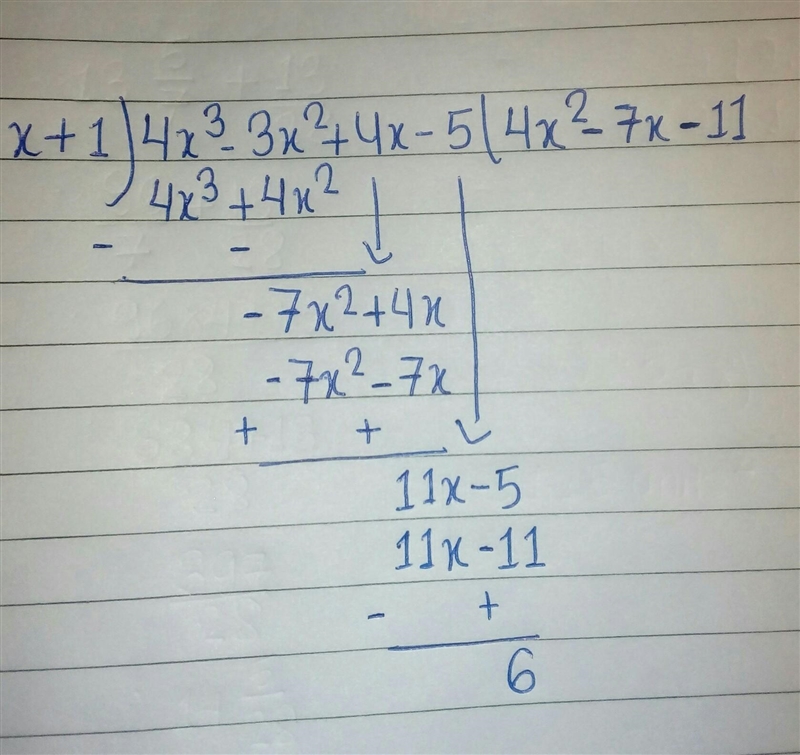 x + 1 ) 4x³ - 3x² + 4x - 5 ( 4x² - 7x - 11
4x³ + 4x²
- -
- 7x² + 4x
- 7x² - 7x
+ +
11x - 5
11x - 11
- +
6